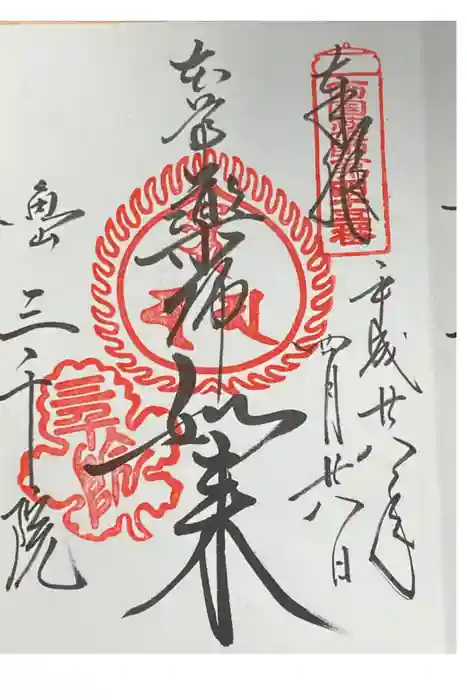 奉拝
平成廿八年
四月廿八日
本尊
薬師如来
魚山
三千院
三千院